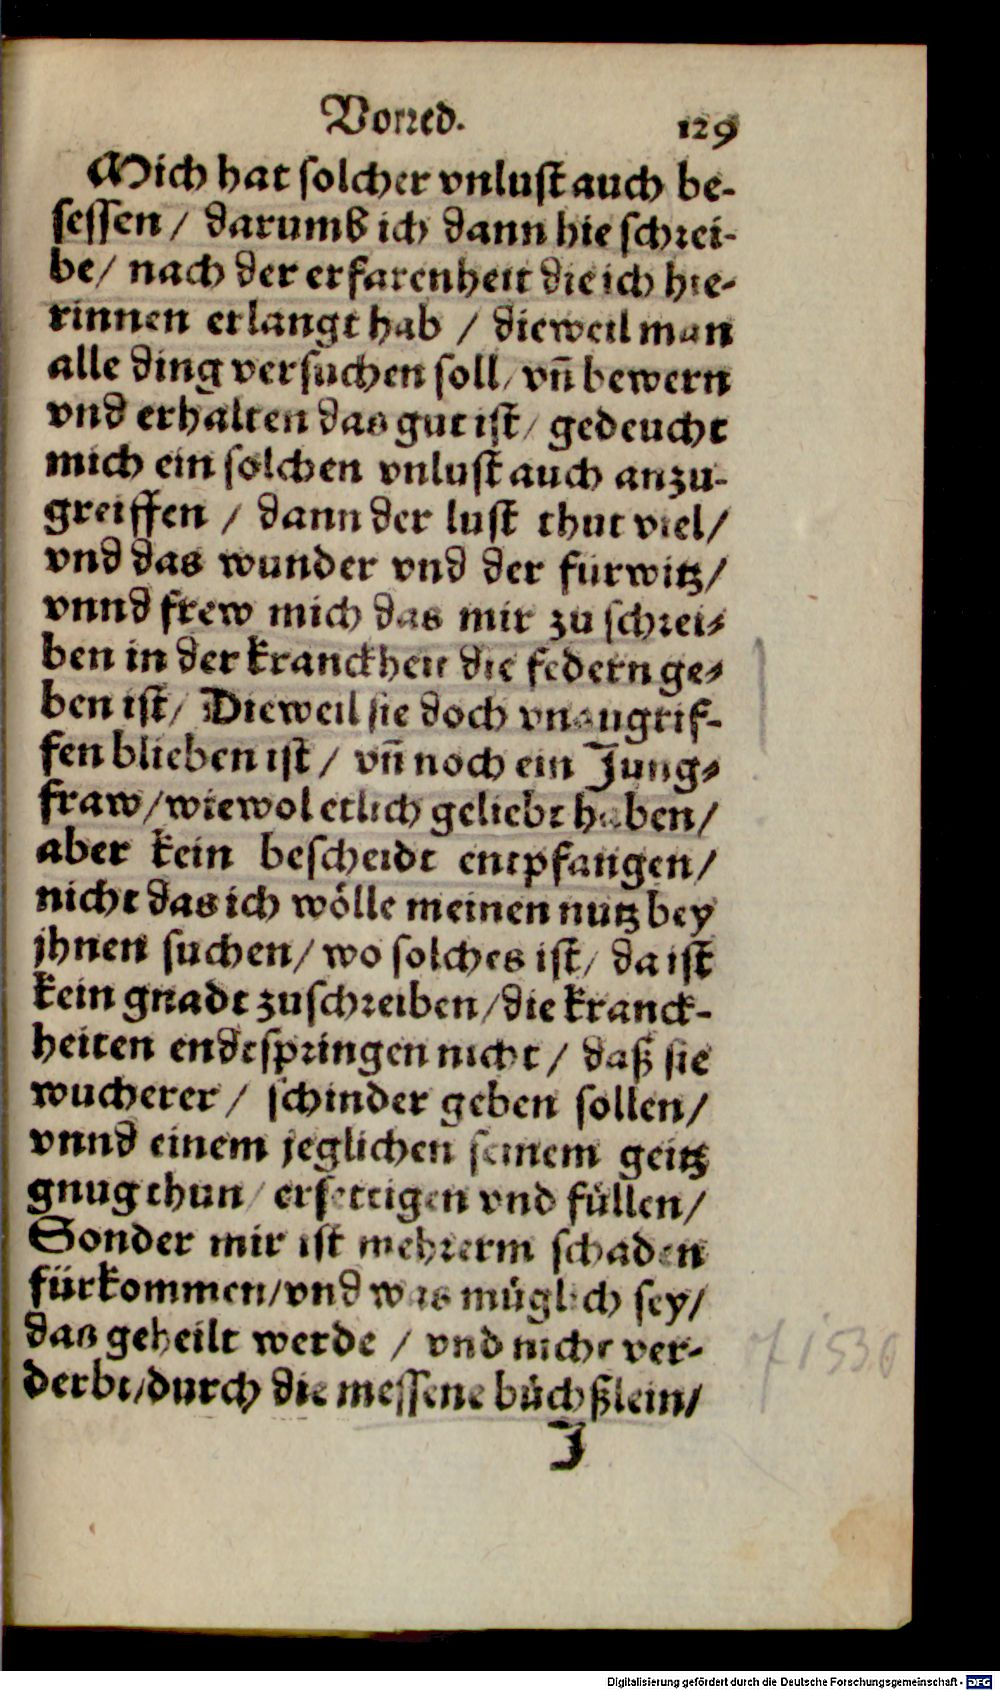 Vorred. 129
Mich hat solcher vnlust auch be-
sessen / darumb ich dann hie schrei-
be / nach der erfarenheit die ich hie-
rinnen erlangt hab / dieweil man
alle ding versuchen soll / vñ bewern
vnd erhalten das gut ist / gedeucht
mich ein solchen vnlust auch anzu-
greiffen / dann der lust thut viel /
vnd das wunder vnd der fürwitz /
vnnd frew mich das mir zu schrei-
ben in der kranckheit die federn ge-
ben ist / Dieweil sie doch vnangrif-
fen blieben ist / vñ noch ein Jung-
fraw / wiewol etlich geliebt haben /
aber kein bescheidt entpfangen /
nicht das ich wölle meinen nutz bey
jhnen suchen / wo solches ist / da ist
kein gnadt zuschreiben / die kranck-
heiten endtspringen nicht / daß sie
wucherer / schinder geben sollen /
vnnd einem jeglichen seinem geitz
gnug thun / ersettigen vnd füllen /
Sonder mir ist mehrerm schaden
fürkommen / vnd was müglich sey /
das geheilt werde / vnd nicht ver-
derbt / durch die messene büchßlein /
J
1536
Digitalisierung gefördert durch die Deutsche Forschungsgemeinschaft - DFG